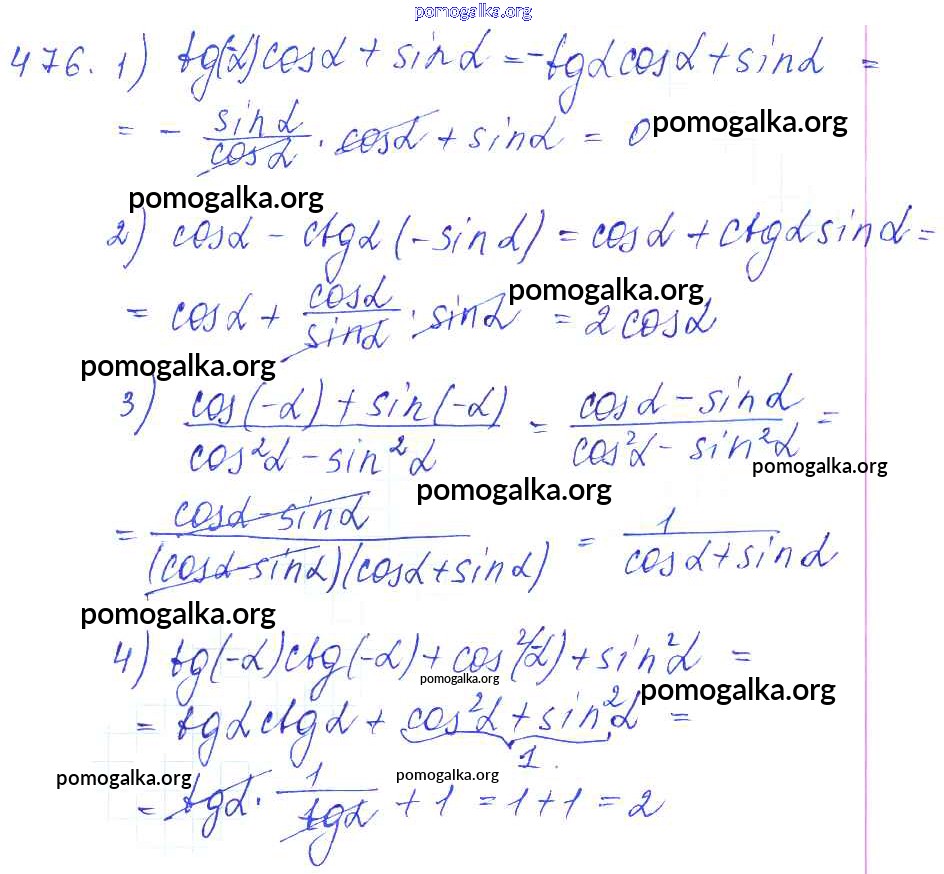 pomogalka.org
476. 1) tg(-α)cosα + sinα = -tgα cosα + sinα =
= - sinα/cosα · cosα + sinα = 0 pomogalka.org
pomogalka.org
2) cosα - ctgα(-sinα) = cosα + ctgα sinα =
pomogalka.org
= cosα + cosα/sinα · sinα = 2cosα
pomogalka.org
3) (cos(-α) + sin(-α))/(cos²α - sin²α) = (cosα - sinα)/(cos²α - sin²α) =
pomogalka.org
pomogalka.org
= (cosα - sinα)/((cosα - sinα)(cosα + sinα)) = 1/(cosα + sinα)
pomogalka.org
4) tg(-α)ctg(-α) + cos²(-α) + sin²α =
pomogalka.org
pomogalka.org
= tgα ctgα + cos²α + sin²α =
1.
pomogalka.org
pomogalka.org
= tgα · 1/tgα + 1 = 1 + 1 = 2